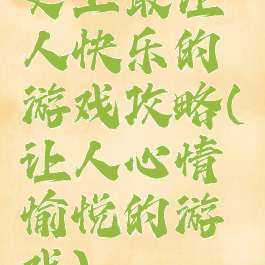 史上最让
人快乐的
游戏攻略(
让人心情
愉悦的游
戏)